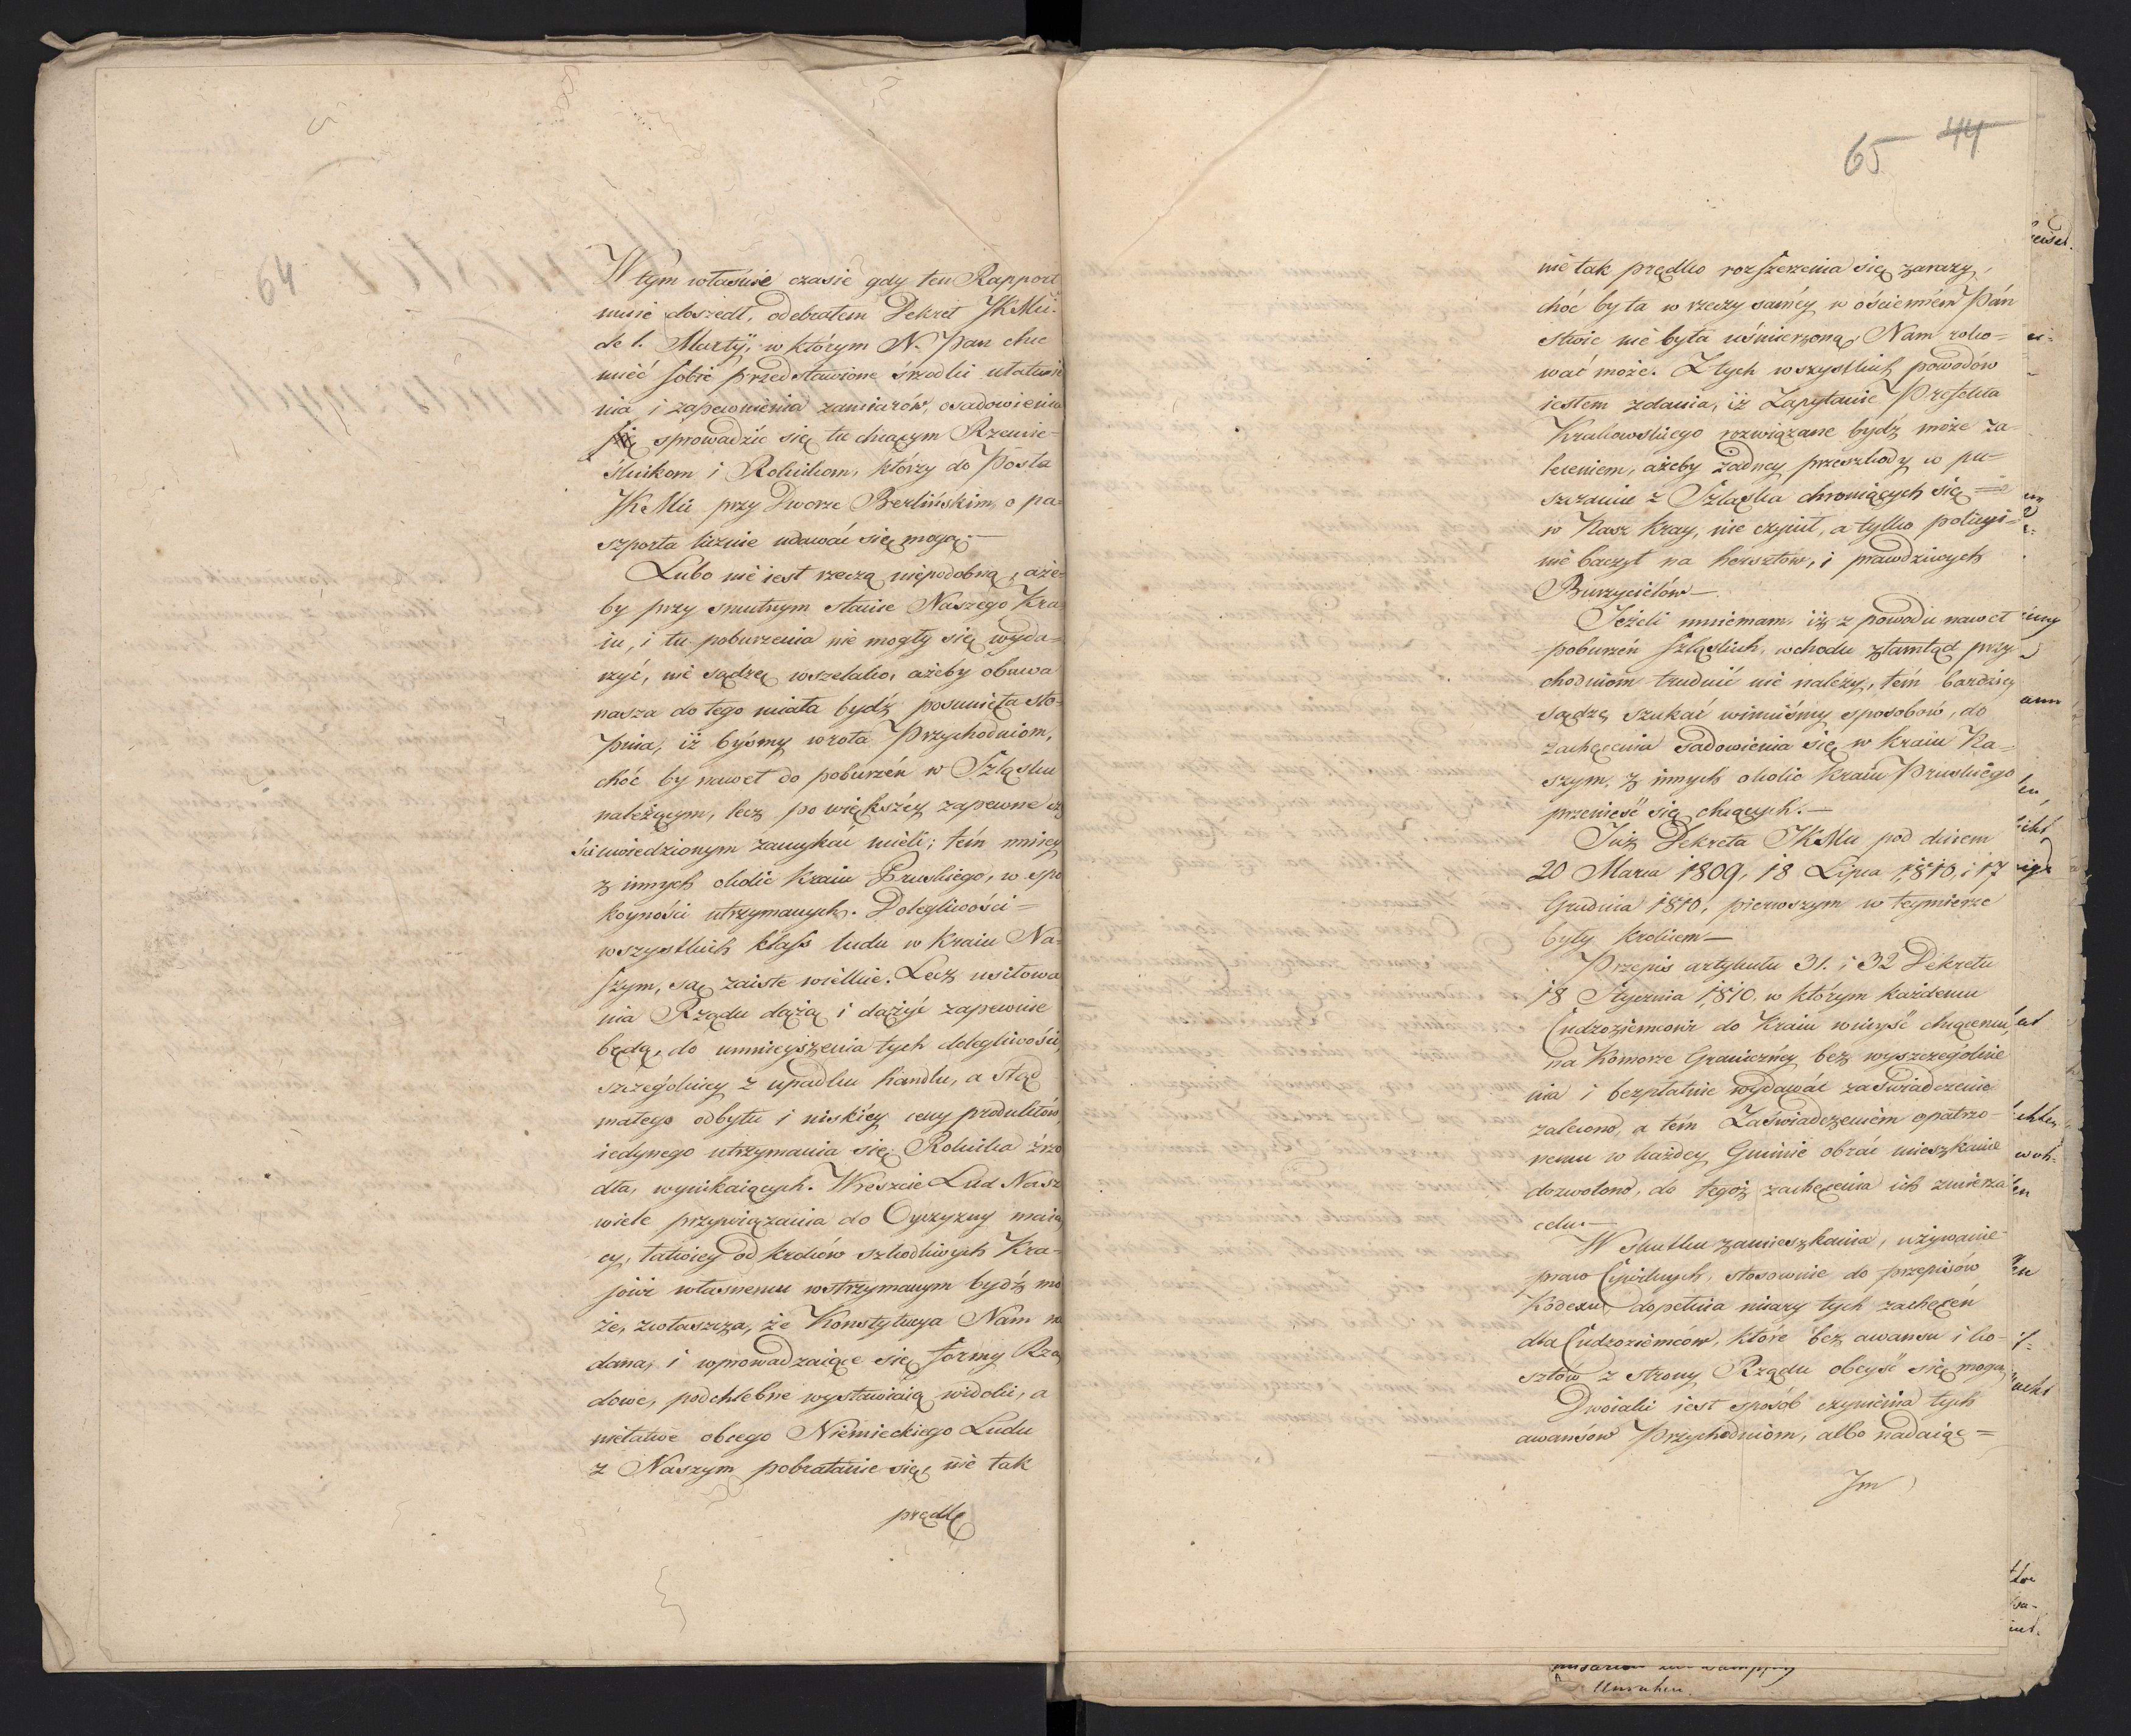 64
W tym właśnie czasie gdy ten Rapport
mnie doszedł, odebrałem Dekret JKMci.
de 1. Martÿ, w którym N. Pan chce
mieć sobie przedstawione środki ułatwie
nia i zapewnienia zamiarów, osadowienia
sprowadzić się tu chcącym Rzemie-
ślnikom i Rolnikom, którzy do Posła
JKMci przy Dworze Berlińskim o pa-
szporta licznie udawać się mają.—
Lubo nie iest rzeczą niepodobną, aże-
by przy smutnym stanie Naszego Kra
iu, i tu poburzenia nie mogły się wyda-
rzyć, nie sądzę wszelako, ażeby obawa
nasza do tego miała bydź posunięta sto-
pnia, iż byśmy wrota Przychodniom,
choć by nawet do poburzeń w Szląsku
należącym, lecz po większéy zapewne czę
ści uwiedzionym zamykać mieli; tém mniey
z innych okolic kraiu Pruskiego, w spo
koyności utrzymanych. Dolegliwości=
wszystkich klass ludu w kraiu Na-
szym, są zaiste wielkie. Lecz usiłowa
nia Rządu dążą i dążyć zapewnie
będą, do umnieyszenia tych dolegliwości,
szczególniey z upadku handlu, a stąd
małego odbytu i niskiéy ceny produktów,
iedynego utrzymania się Rolnika źrzo
dła, wynikaiących. Wreszcie Lud Nasz
wiele przywiązania do Oyczyzny maią
cy, łatwiey od kroków szkodliwych Kra-
jowi własnemu wstrzymanym bydź mo
że, zwłaszcza, że Konstytucya Nam na
dana, i wprowadzaiące się formy Rzą
dowe, podchlebne wystawiaią widoki, a
niełatwe obcego Niemieckiego Ludu
z Naszym pobratanie się, nie tak
prędk
65 44
nie tak prędko rozszerzenia się zarazy,
choć by ta w rzeczy saméy w ościennem Pań
stwie nie była uśmierzoną, Nam roko=
wać może. Z tych wszystkich powodów
iestem zdania, iż Zapytanie Prefekta
Krakowskiego rozwiązane bydź może za-
leceniem, ażeby żadney przeszkody w pu-
szczaniu z Szląska chroniących się =
w Nasz Kray, nie czynił, a tylko policyi=
nie baczył na hersztów, i prawdziwych
Burzycielów—
Jeżeli mniemam, iż z powodu nawet
poburzeń Szląskich, wchodu ztamtąd przy-
chodniom trudnić nie należy, tém bardziey
sądzę szukać winniśmy sposobów, do
zachęcenia sadowienia się w kraiu Na=
szym, z innych okolic kraiu Pruskiego
przenieść się chcących.—
Już Dekreta JKMci pod dniem
20 Marca 1809, 18 Lipca 1810, i 17
Grudnia 1810, pierwszym w teymierze
były krokiem—
Przepis artykułu 31. i 32 Dekretu
18 Stycznia 1810, w którym każdemu
Cudzoziemcowi do Kraiu wniyść chcącemu,
na Komorze Graniczney, bez wyszczególnie
nia i bezpłatnie wydawać zaświadczenie
zalecono, a tém Zaświadczeniem opatrzo-
nemu w każdey Gminie obrać mieszkanie
dozwolono, do tegoż zachęcenia ich zmierza
celu—
W skutku zamieszkania, używanie
praw Cywilnych, stosownie do przepisów
Kodexu dopełnia miary tych zachęceń
dla Cudzoziemców, które bez awansu i ko-
sztów z strony Rządu obeyść się mogą,
Dwoiaki iest sposób czynienia tych
awansów Przychodniom, albo nadaiąc=
Jm